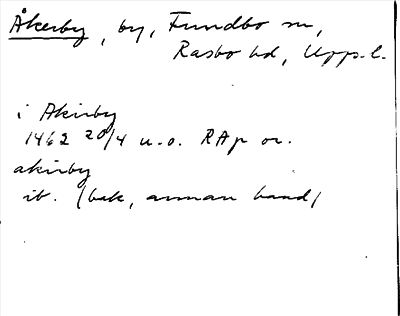 Åkerby, by, Fundbo sn,
Rasbo hd, Upps. l.
i Akirby
1462 20/4 u.o. RAp or.
akirby
ib. (bak, annan hand)